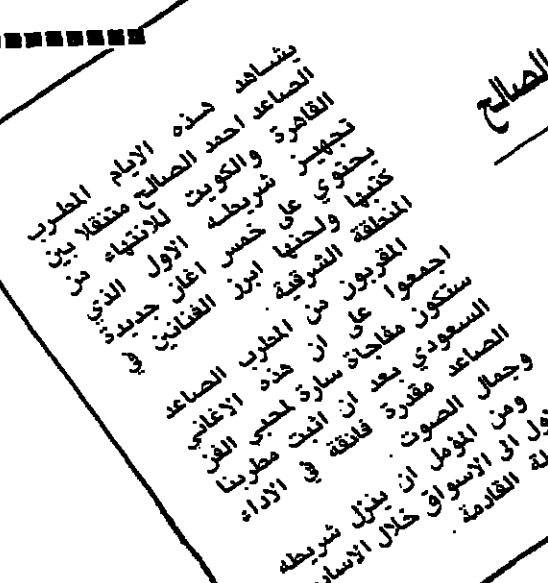 الصالح
يشاهد هذه الايام المطرب
الصاعد احمد الصالح متنقلا بين
القاهرة والكويت للانتهاء من
تجهيز شريطه الاول الذي
يحتوي على خمس اغان جديدة
كتبها ولحنها ابرز الفنانين في
المنطقة الشرقية .
المقربون من المطرب الصاعد
اجمعوا على ان هذه الاغاني
ستكون مفاجاة سارة لمحبي الفن
السعودي بعد ان اثبت مطربنا
الصاعد مقدرة فائقة في الاداء
وجمال الصوت .
ومن المؤمل ان ينزل شريطه
الى الاسواق خلال
القادمة .